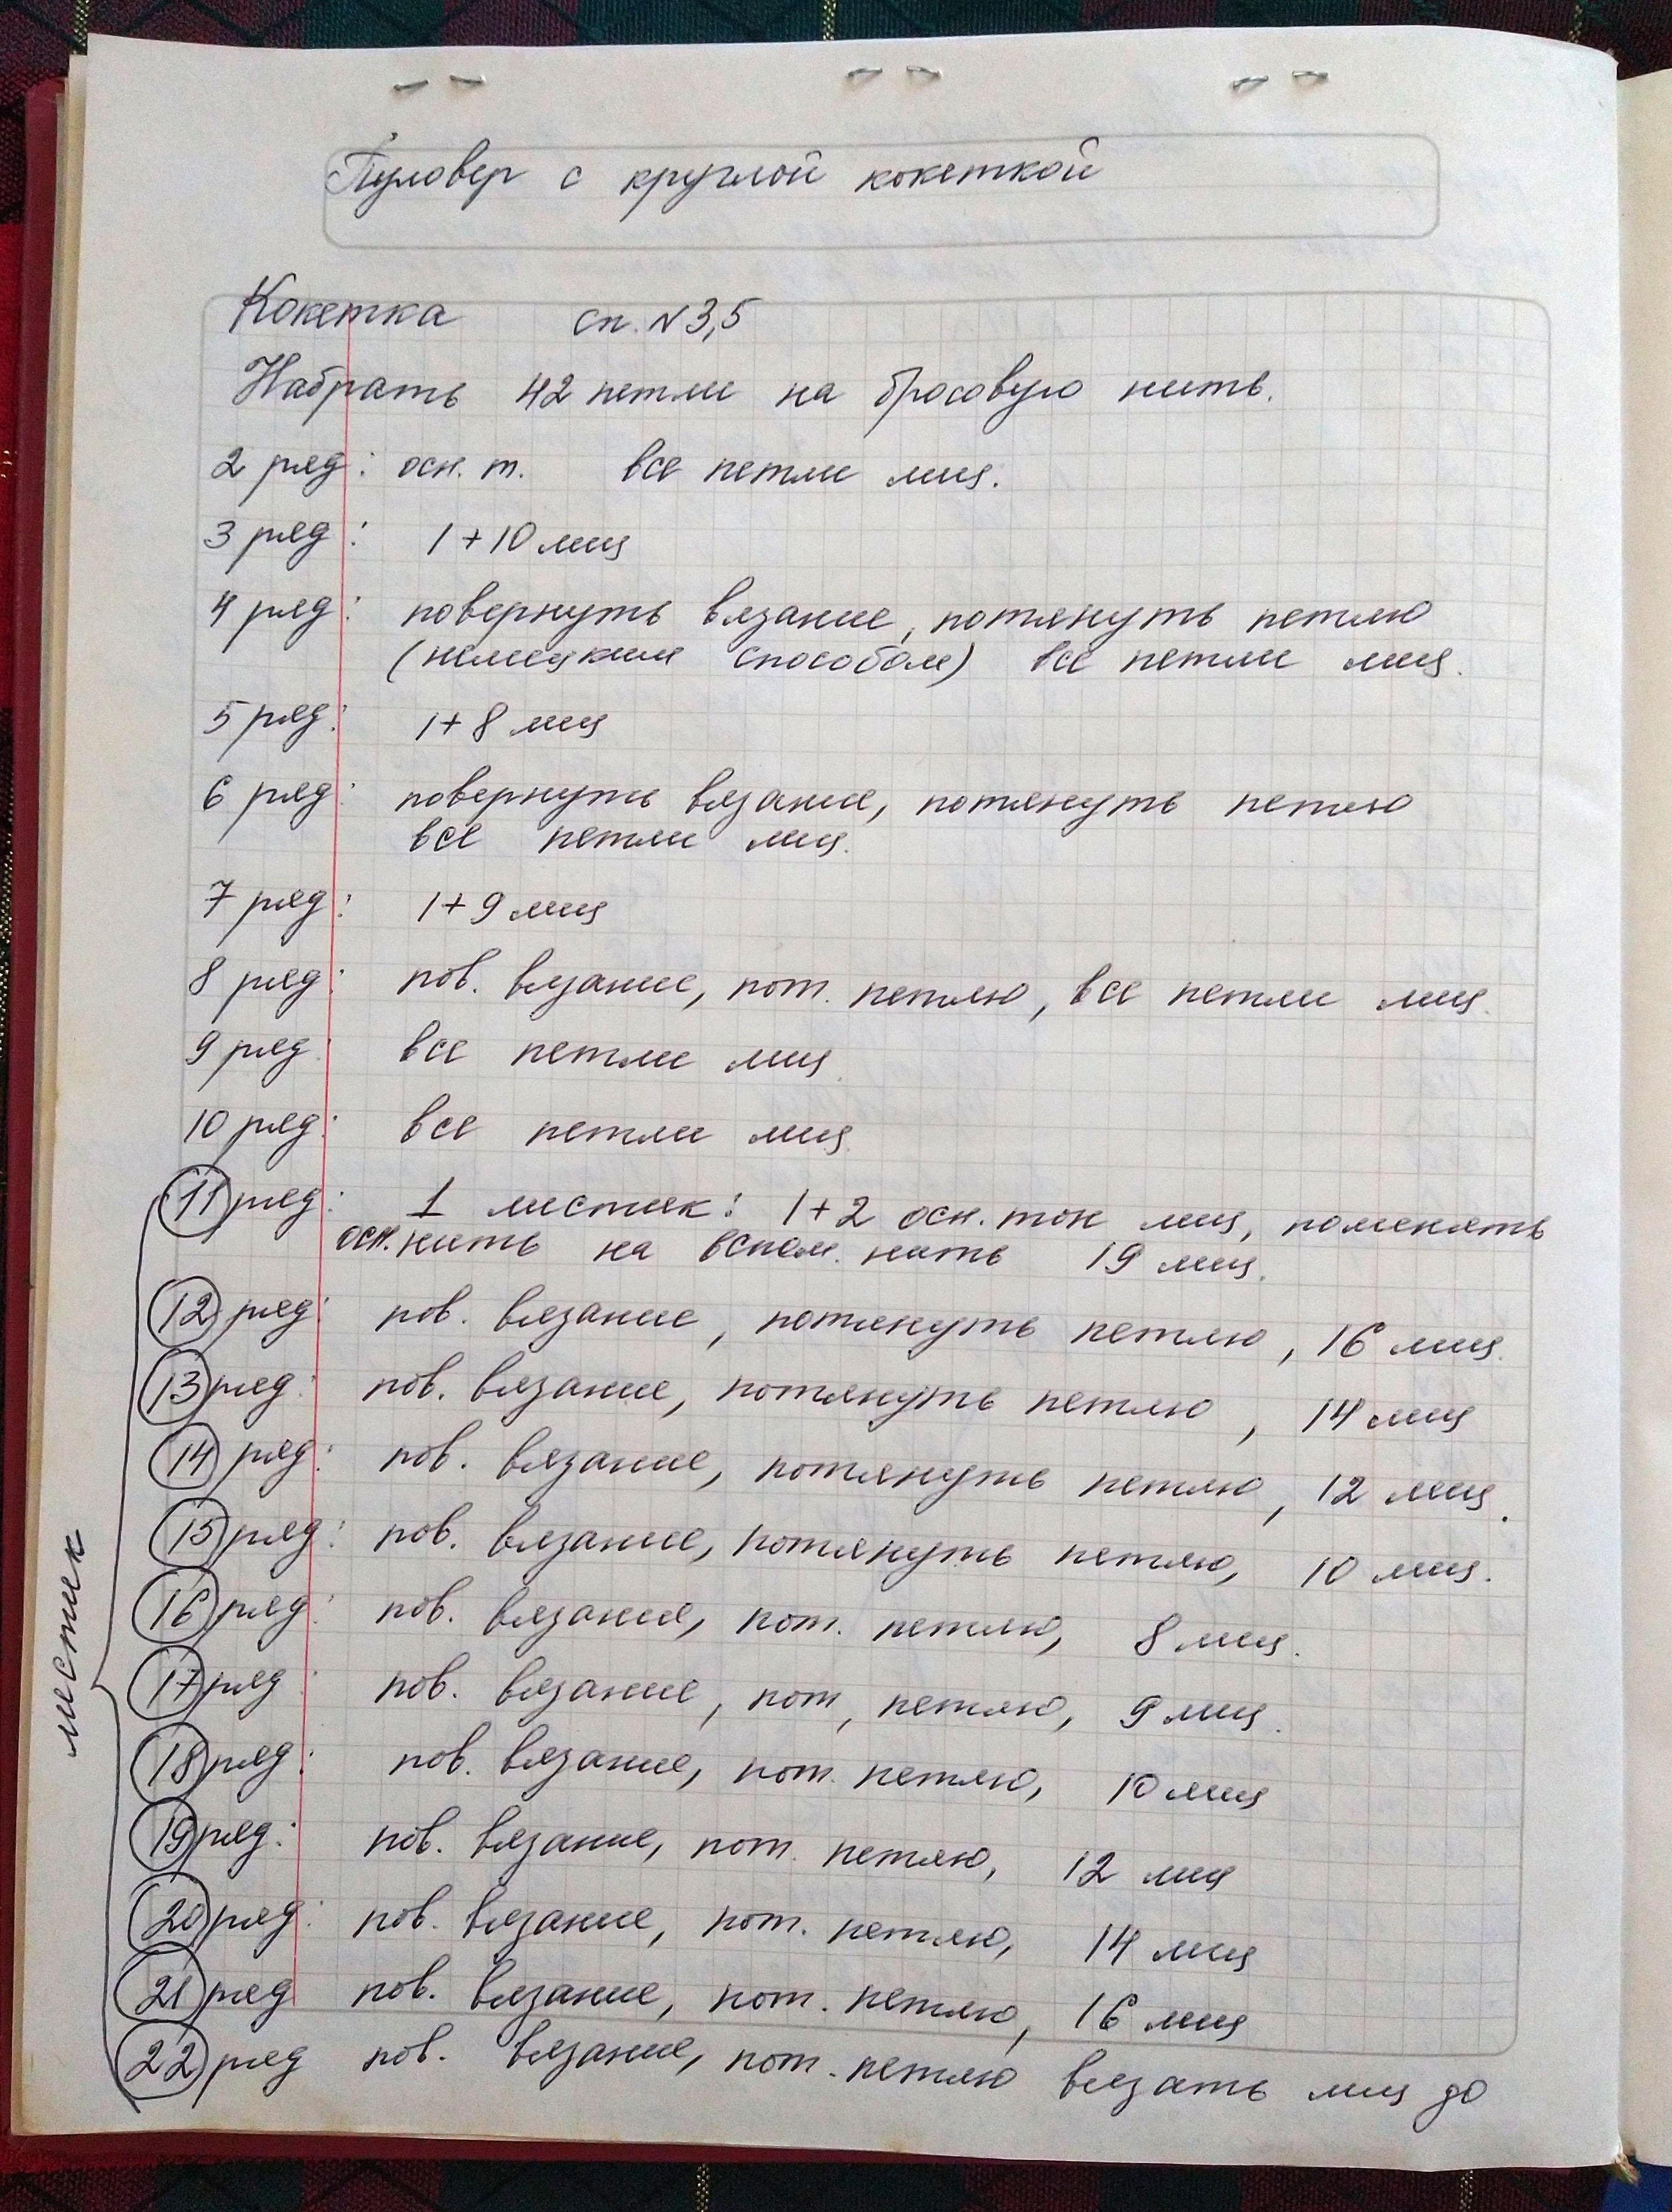 Пуловер с круглой кокеткой
Кокетка сп. №3,5
Набрать 42 петли на бросовую нить.
2 ряд: осн. т. все петли лиц.
3 ряд: 1+10 лиц
4 ряд: повернуть вязание, потянуть петлю
(немецким способом) все петли лиц.
5 ряд: 1+8 лиц
6 ряд: повернуть вязание, потянуть петлю
все петли лиц.
7 ряд: 1+9 лиц
8 ряд: пов. вязание, пот. петлю, все петли лиц.
9 ряд: все петли лиц.
10 ряд: все петли лиц.
11 ряд: 1 листик: 1+2 осн. тон лиц, поменять
осн. нить на вспом. нить 19 лиц.
12 ряд: пов. вязание, потянуть петлю, 16 лиц.
13 ряд: пов. вязание, потянуть петлю, 14 лиц
14 ряд: пов. вязание, потянуть петлю, 12 лиц.
15 ряд: пов. вязание, потянуть петлю, 10 лиц.
16 ряд: пов. вязание, пот. петлю, 8 лиц.
17 ряд: пов. вязание, пот, петлю, 9 лиц.
18 ряд: пов. вязание, пот. петлю, 10 лиц
19 ряд: пов. вязание, пот. петлю, 12 лиц
20 ряд: пов. вязание, пот. петлю, 14 лиц
21 ряд пов. вязание, пот. петлю, 16 лиц
22 ряд пов. вязание, пот. петлю вязать лиц до
листик